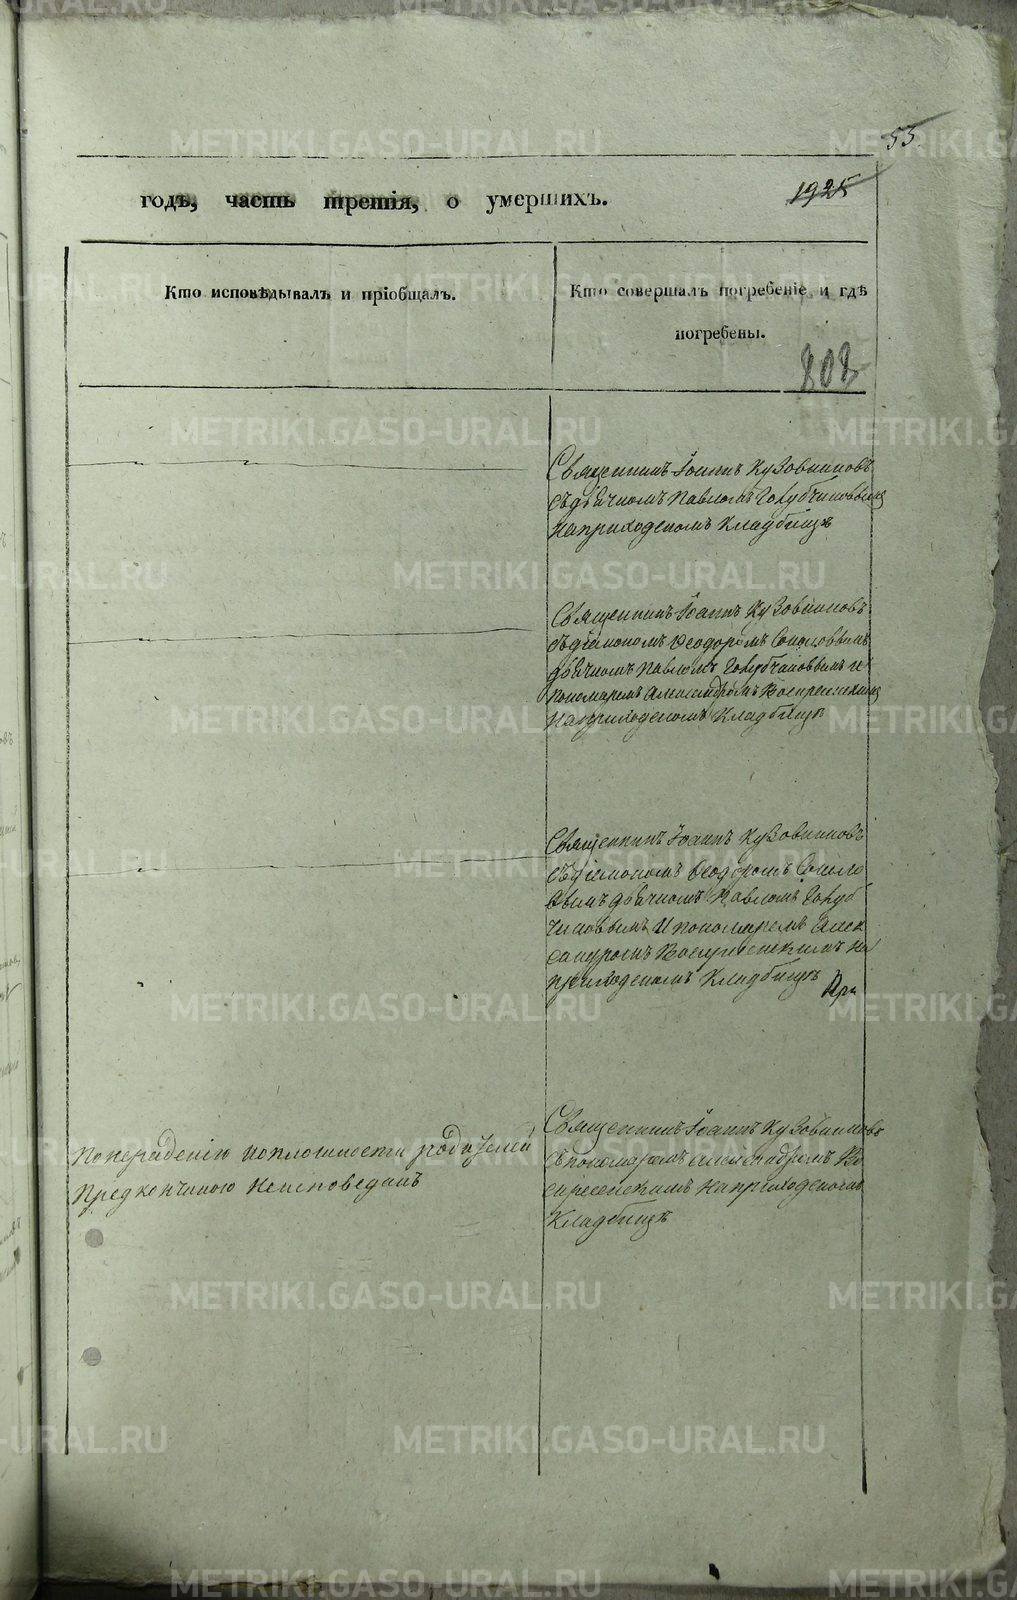 53
годъ, часть третія, о умершихъ.
1925
Кто исповѣдывалъ и пріобщалъ.
Кто совершалъ погребеніе, и гдѣ
погребены.
808
Священникъ Іоаннъ Кузовниковъ
съ дьячкомъ Павломъ Голубчиковымъ
на приходскомъ кладбищѣ
Священникъ Іоаннъ Кузовниковъ
съ діакономъ Ѳеодоромъ Соколовымъ
дьячкомъ Павломъ Голубчиковымъ и
пономаремъ Александромъ
на приходскомъ кладбищѣ
Священникъ Іоаннъ Кузовниковъ
съ діакономъ Ѳеодоромъ Соколо
вымъ дьячкомъ Павломъ Голуб
чиковымъ и пономаремъ Алек
сандромъ на
приходскомъ кладбищѣ
При
По нерадению и оплошности родителей
предъ кончиною неисповеданъ
Священникъ Іоаннъ Кузовниковъ
съ пономаремъ Александромъ Во
скресенскимъ на приходскомъ
кладбищѣ
METRIKI.GASO-URAL.RU